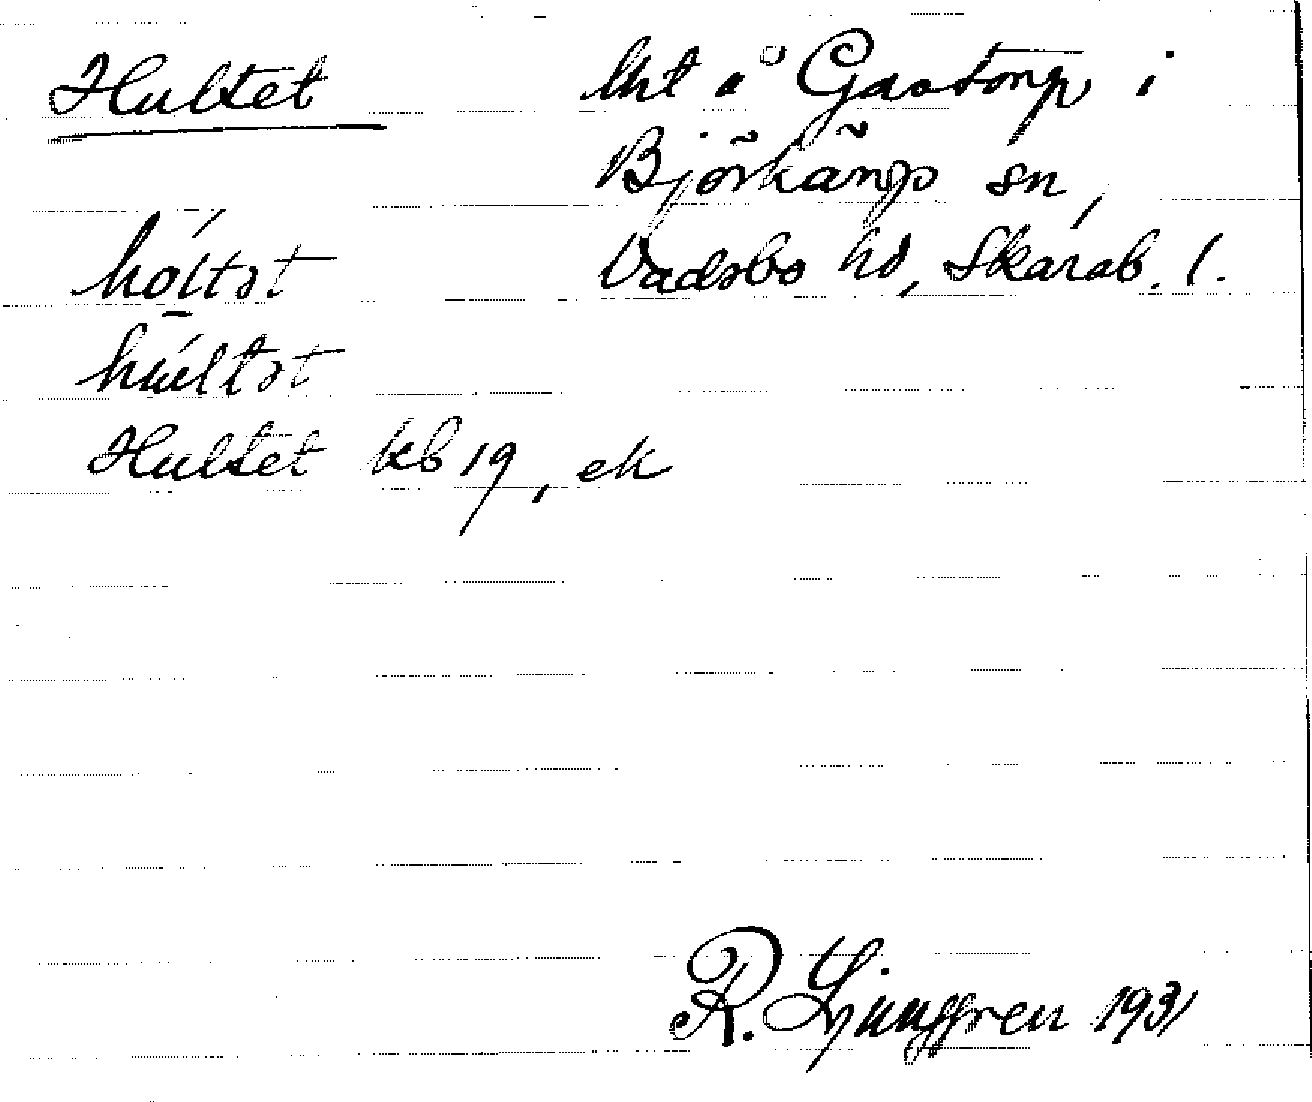 Hultet
lht å Gastorp i
Björkängs sn,
Vadsbo hd, Skarab. l.
hóltət
húltət
Hultet kb 19, ek
R. Ljunggren 1931